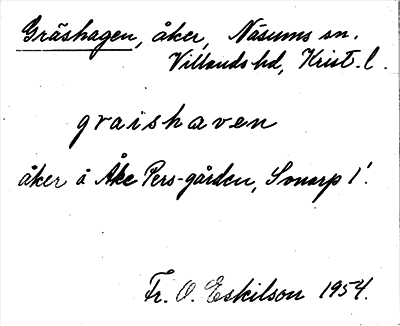 Gräshagen, åker, Näsums sn.
Villands hd, Krist. l.
graishaven
åker å Åke Pers-gården, Snarp 1!
Fr. O. Eskilson 1954.